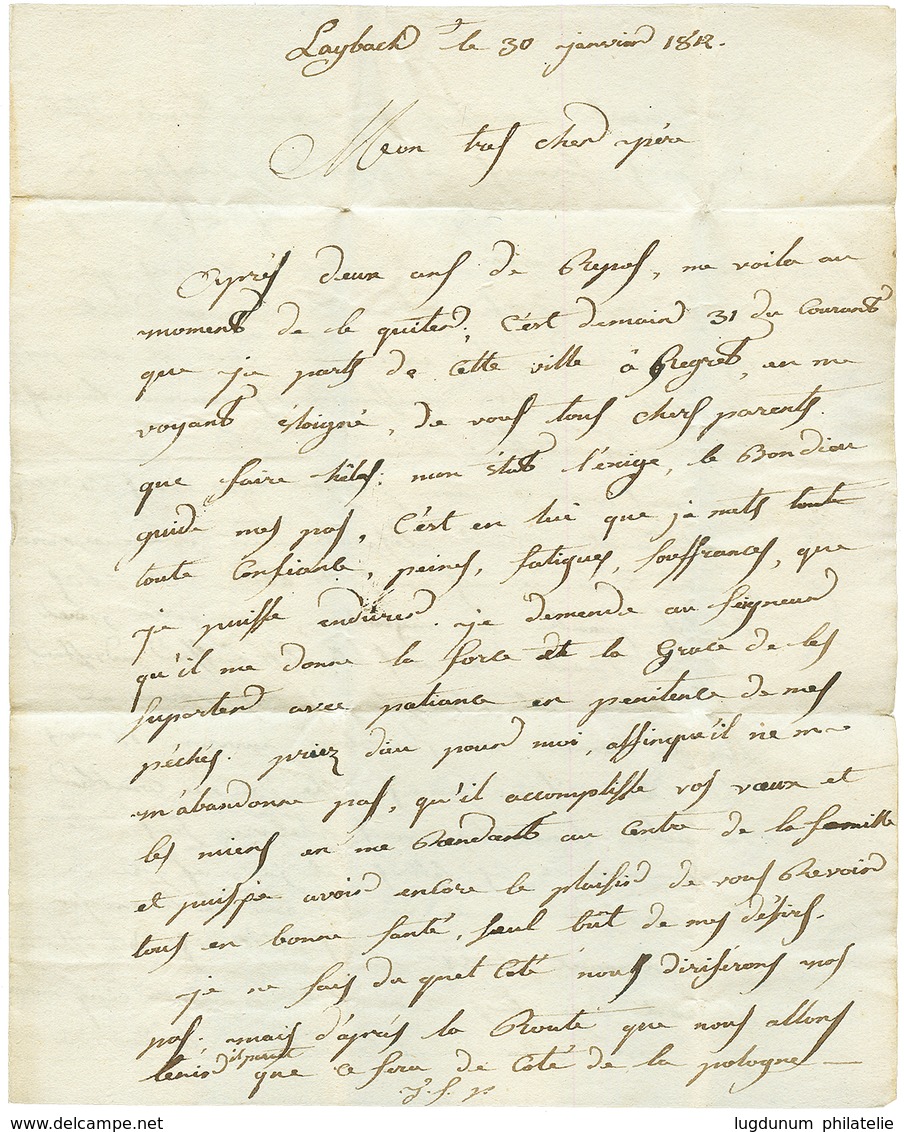 Laybach le 30 janvier 1812.
Mon tres cher père
Après deux ans de Repos, me voila au
moment de le quiter, C'est demain 31 du Courant
que je parts de Cette ville à Regret, en me
voyant éloigné, de vous tous chers parents.
que faire hélas; mon état l'exige, le Bon dieu
guide mes pas, C'est en lui que je mets toute
toute Confiance, peines, fatigues, souffrances, que
je puisse endurer. je demande au Seigneur
qu'il me donne la force et la Grace de les
suporter avec patiance en penitence de mes
péchés. priez dieu pour moi, affinqu'il ne m
m'abandonne pas, qu'il accomplisse vos vœux et
les miens en me Rendant au Centre de la famille
et puisse avoir encore le plaisir de vous Revoir
tous en bonne santé, seul bût de mes désirs.
je ne sais de quel Coté nous dirisérons nos
pas. mais d'après la Route que nous allons
tenir il parait que ce sera de Coté de la pologne
T. s. p.
delcampe.net
lugdunum philatelie